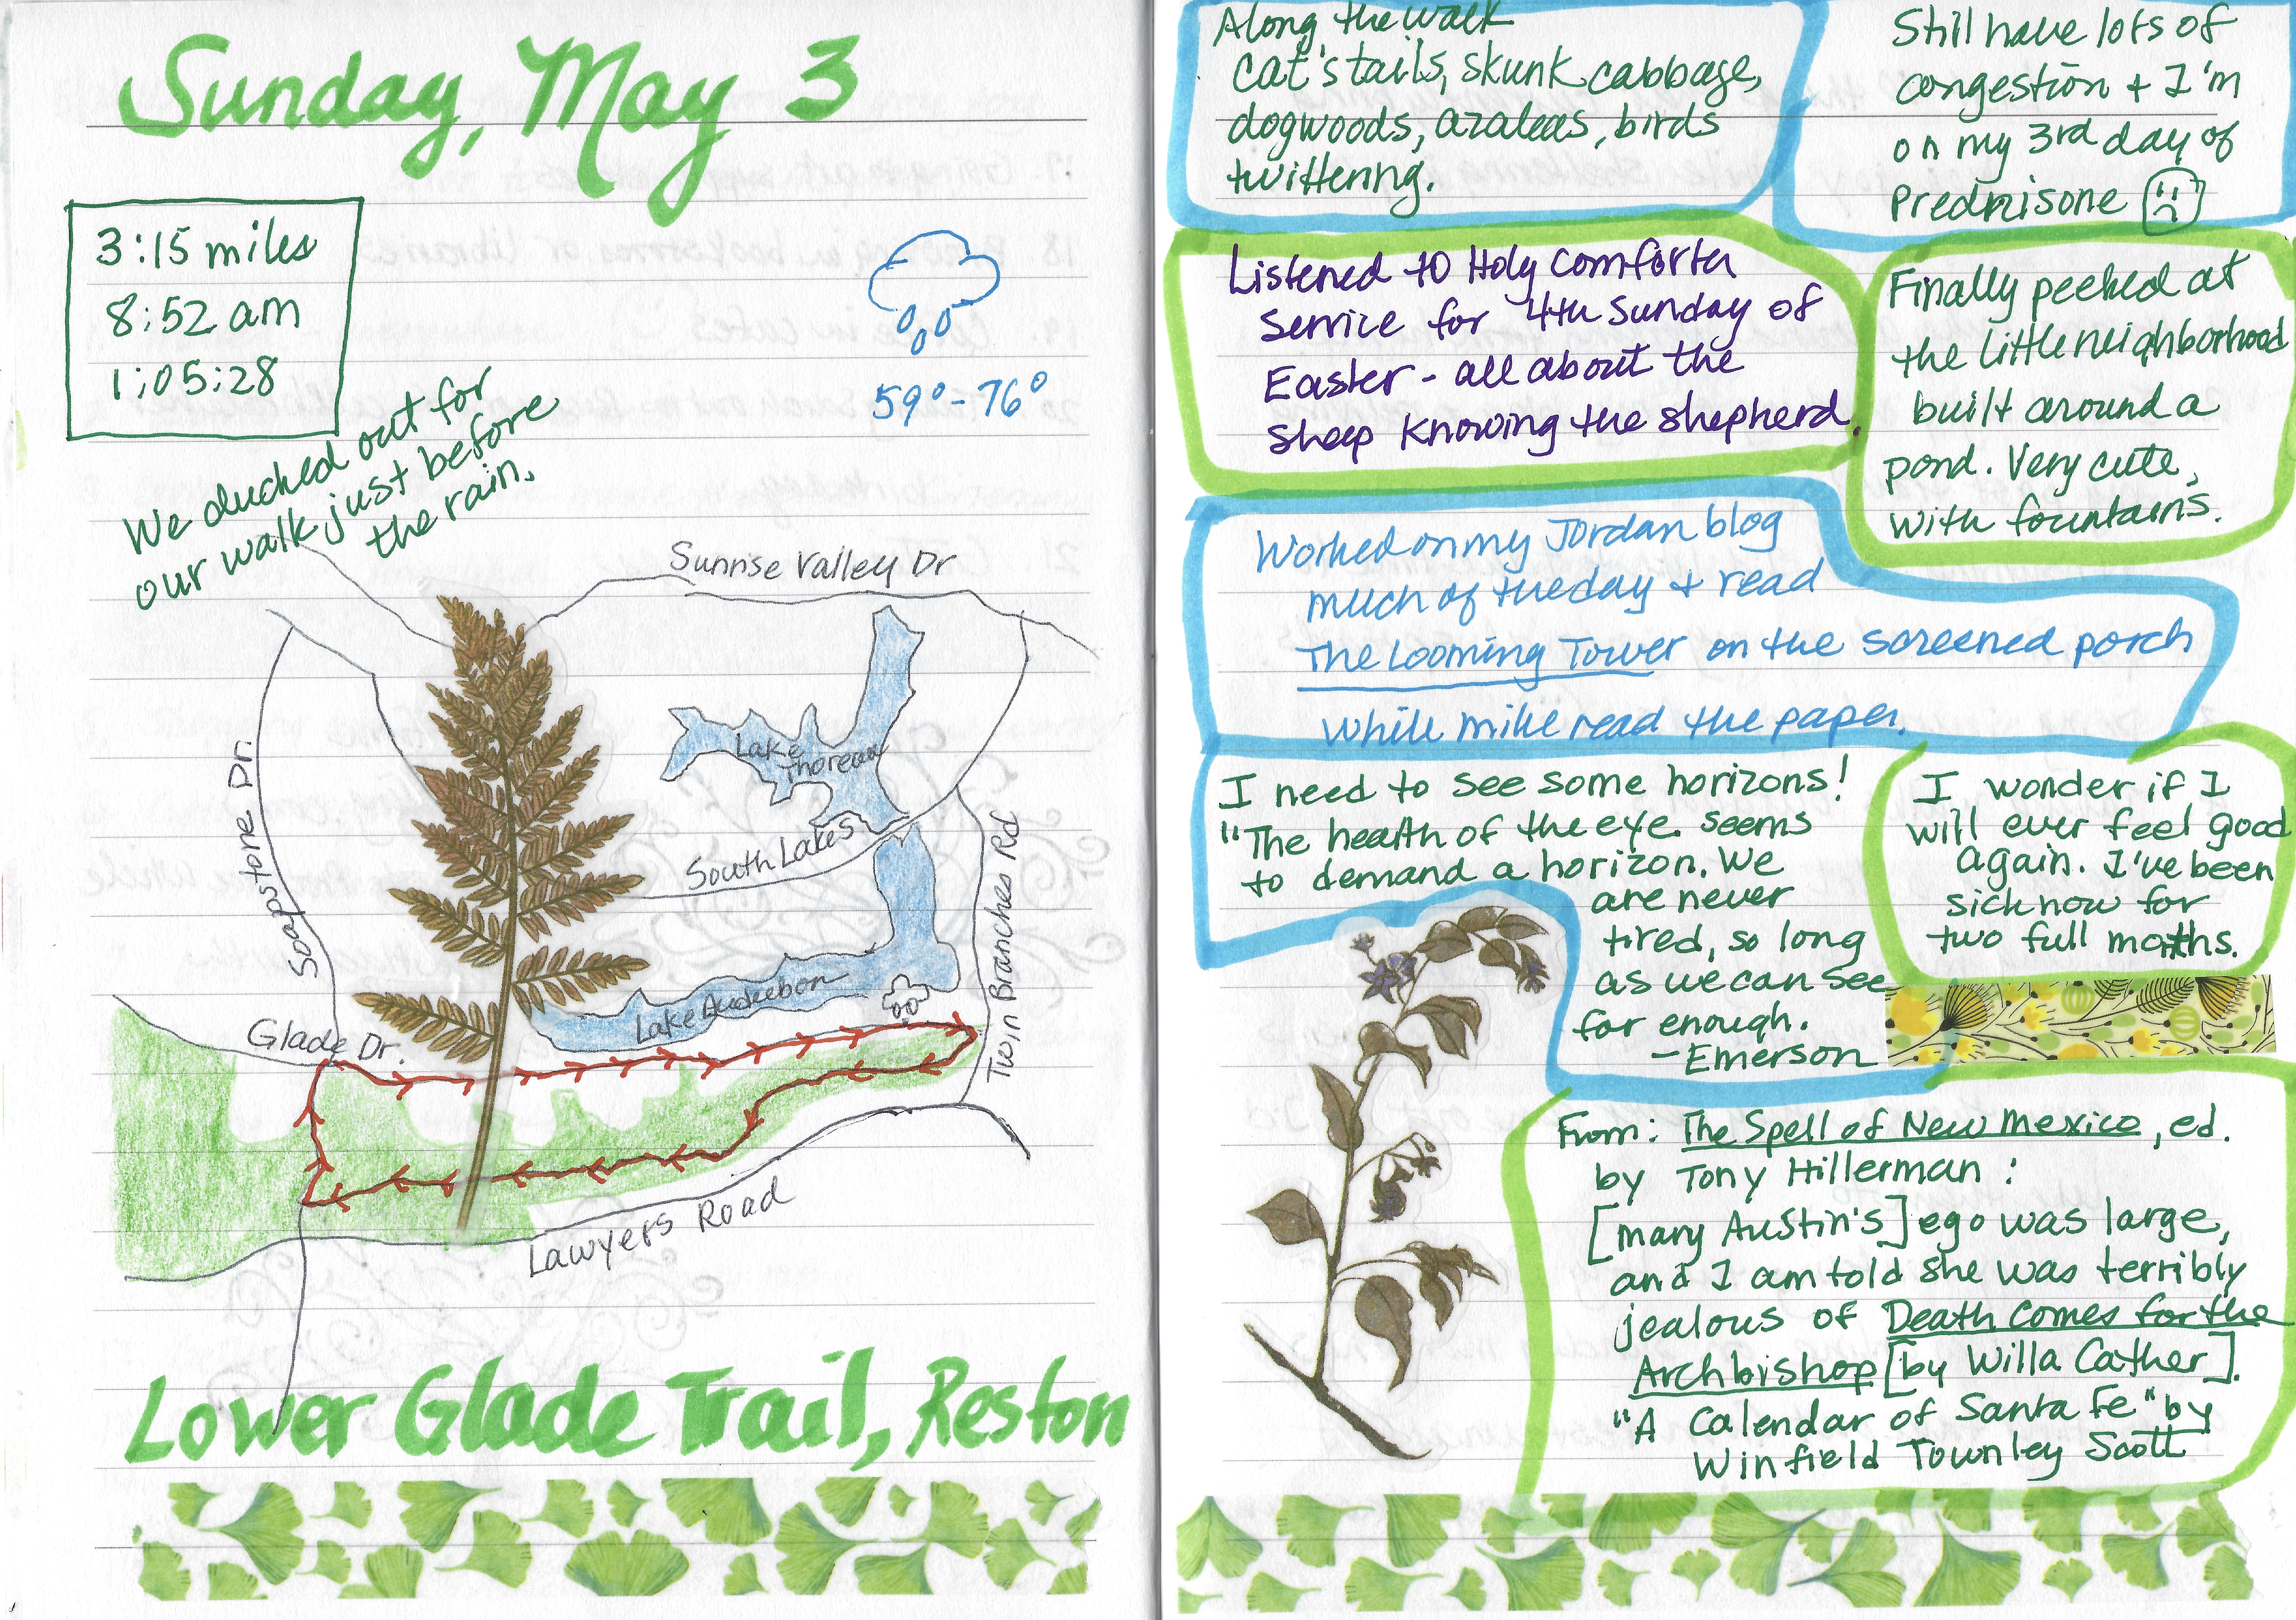 Sunday, May 3
3:15 miles
8:52 am
1:05:28
We ducked out for
our walk just before
the rain.
59° - 76°
Sunrise Valley Dr
Soapstone Dr.
Lake
Thoreau
South Lakes
Twin Branches Rd
Lake Audubon
Glade Dr.
Lawyers Road
Lower Glade Trail, Reston
Along the walk
cat's tails, skunk cabbage,
dogwoods, azaleas, birds
twittering.
Still have lots of
congestion + I'm
on my 3rd day of
Prednisone
Listened to Holy Comforter
Service for 4th Sunday of
Easter - all about the
sheep knowing the shepherd.
Finally peeked at
the little neighborhood
built around a
pond. Very cute,
with fountains.
Worked on my Jordan blog
much of the day + read
The Looming Tower on the screened porch
while Mike read the paper.
I need to see some horizons!
"The health of the eye seems
to demand a horizon. We
are never
tired, so long
as we can see
far enough.
- Emerson
I wonder if I
will ever feel good
again. I've been
sick now for
two full months.
From: The Spell of New Mexico, ed.
by Tony Hillerman:
[Mary Austin's] ego was large,
and I am told she was terribly
jealous of Death Comes for the
Archbishop [by Willa Cather].
"A Calendar of Santa Fe" by
Winfield Townley Scott